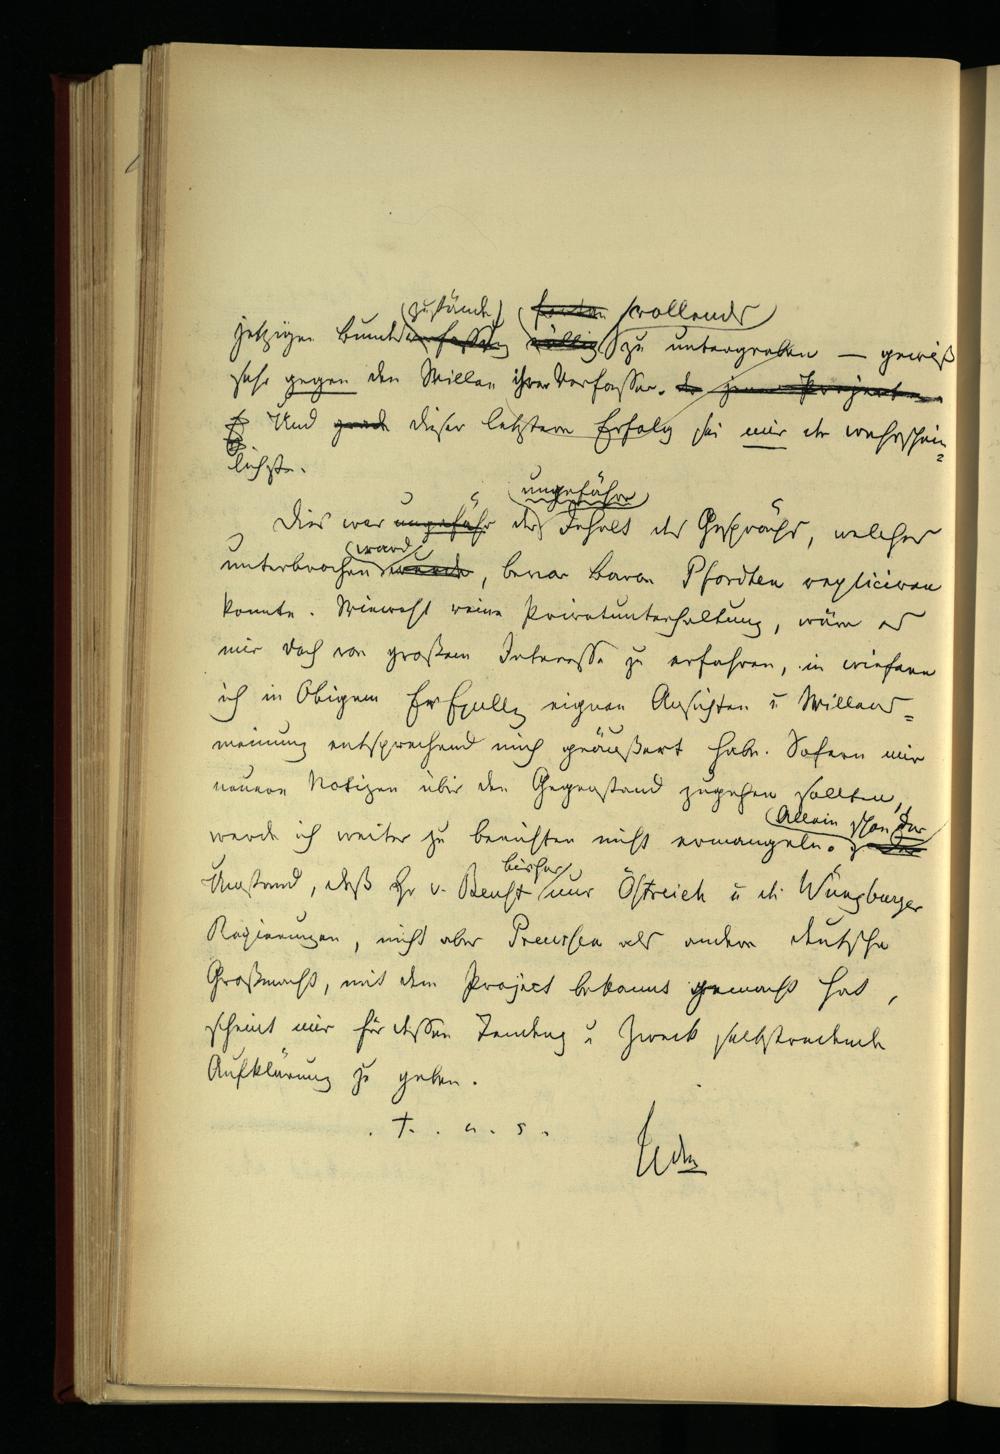 zustände vollends
jetzigen Bundes zu untergraben — gewiß
sehr gegen den Willen ihrer Verfasser.
Und grade dieser letztere Erfolg sei mir der wahrschein=
lichste.
ungefähre
Dies war ungefähr der Inhalt des Gesprächs, welches
ward
unterbrochen wurde, bevor Baron Pfordten repliciren
konnte. Wiewohl reine Privatunterhaltung, wäre es
mir doch von großem Interesse zu erfahren, in wiefern
ich in Obigem Ew Exzellz eignen Ansichten u Willens=
meinung entsprechend mich geäußert habe. Sofern mir
neuere Notizen über den Gegenstand zugehen sollten,
Allein schon der
werde ich weiter zu berichten nicht ermangeln.
bisher
Umstand, daß Hr v. Beust nur Östreich u die Würzburger
Regierungen, nicht aber Preussen als andere deutsche
Großmacht, mit dem Project bekannt gemacht hat,
scheint mir für dessen Tendenz u Zweck selbstredende
Aufklärung zu geben.